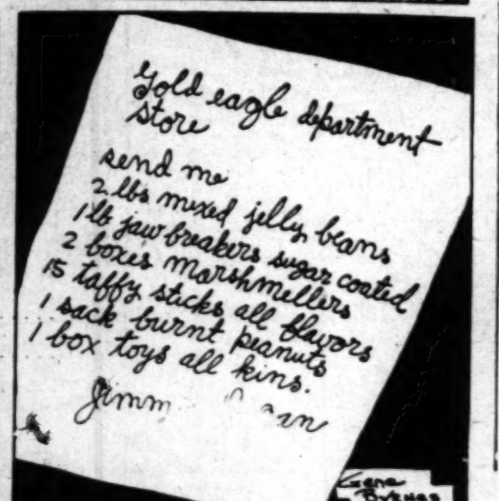 Gold eagle department
store
send me
2 lbs mixed jelly beans
1 lb jaw breakers sugar coated
2 boxes marshmellers
15 taffy sticks all flavors
1 sack burnt peanuts
1 box toys all kins.
Gene